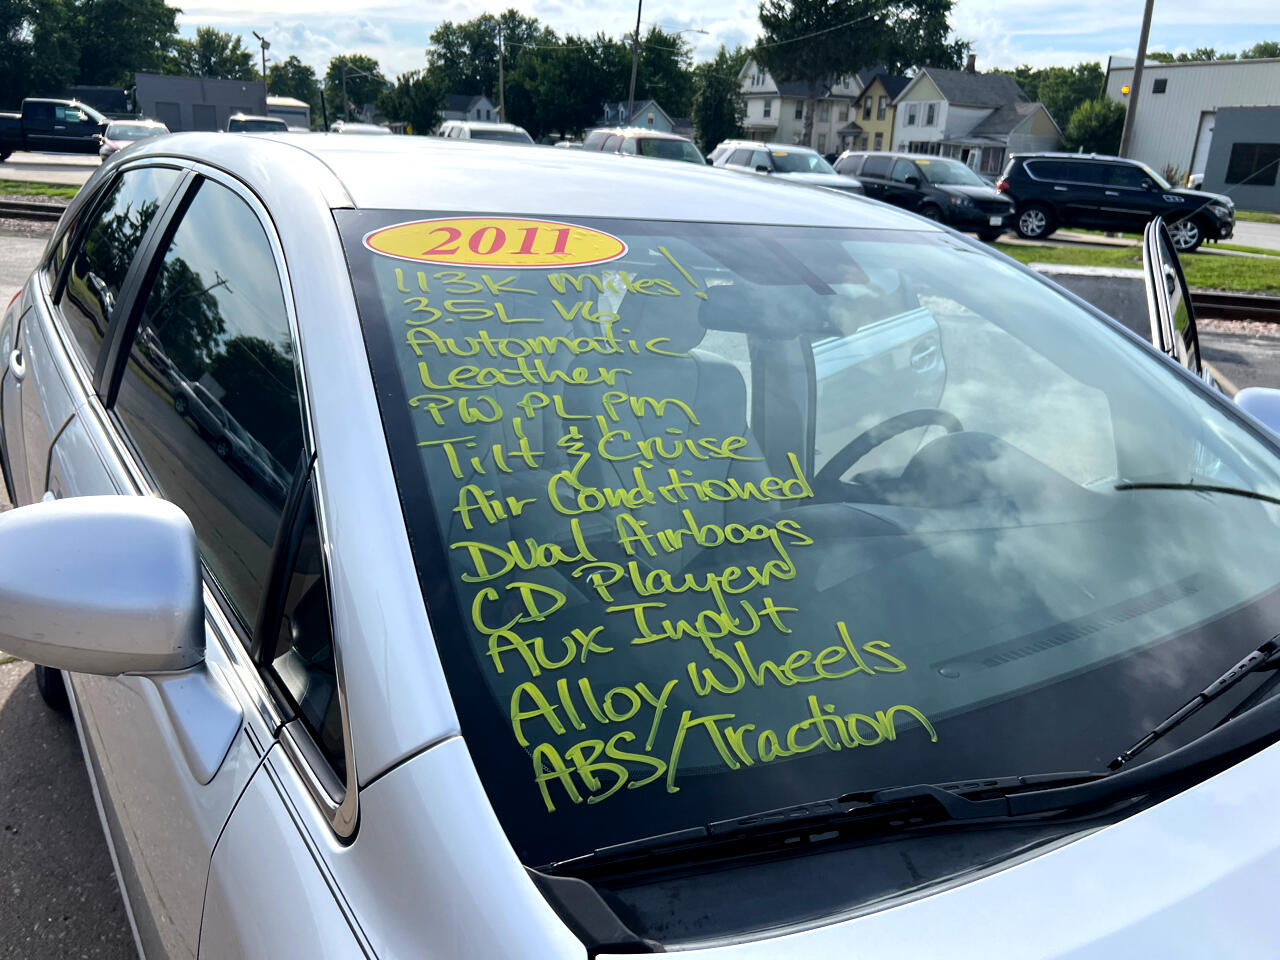 2011
113K Miles!
3.5L V6
Automatic
Leather
PW, PL, PM
Tilt & Cruise
Air Conditioned
Dual Airbags
CD Player
Aux Input
Alloy Wheels
ABS/Traction